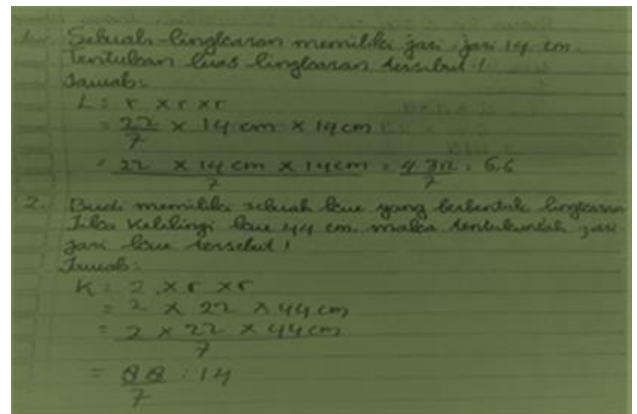 1. Sebuah lingkaran memiliki jari-jari 14 cm.
Tentukan luas lingkaran tersebut!
Jawab:
L = r x r x r
= 22/7 x 14 cm x 14 cm
= 22 x 14 cm x 14 cm / 7 = / 7 = 6.6
2. Budi memiliki sebuah kue yang berbentuk lingkaran
Jika Kelilingi kue 44 cm. maka tentukanlah jari
jari kue tersebut!
Jawab:
K = 2 x r x r
= 2 x 22 x 44 cm
= 2 x 22 x 44 cm / 7
= 88 / 7 : 14